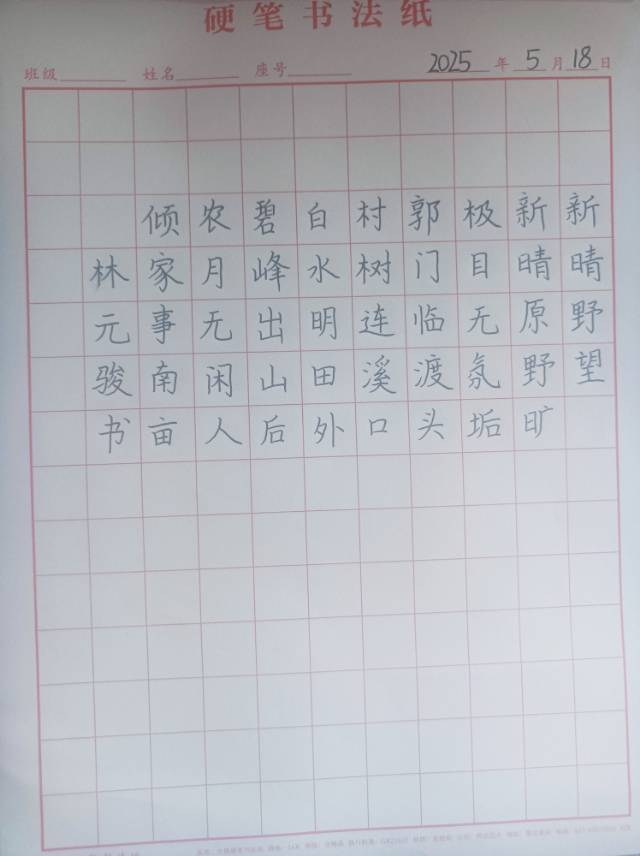 硬笔书法纸
班级 姓名 座号 2025年5月18日
新晴野望
新晴原野旷
极目无氛垢
郭门临渡头
村树连溪口
白水明田外
碧峰出山后
农月无闲人
倾家事南亩
林元骏书